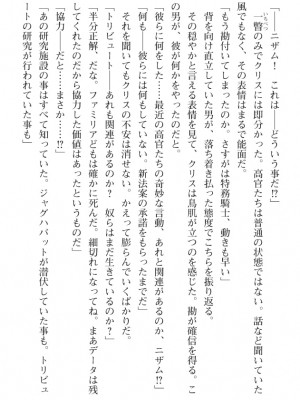 「――ニザム!　これは――どういう事だ!?」
一瞥のみでクリスには即分かった。高官たちは普通の状態ではない。話など聞いていた
風でもなく、その表情はまるで能面だ。
「もう勘付いてしまったか。さすが特務騎士、動きも早い」
背を向け直立していた男が、落ち着き払った態度でこちらを振り返る。
その穏やかと言える表情を見て、クリスは鳥肌が立つのを感じた。勘が確信を得る。こ
の男が、彼が何かをやったのだと。
「彼らに何をした……最近の高官たちの奇妙な言動、あれと関連があるのか、ニザム!?」
「何も――彼らには何もしていない。新法案の承諾をもらったまでだ」
それを聞いてもクリスの不安は消せない。かえって膨らんでいくばかりだ。
「トリビュート――あれも関連があるのか?　奴らはまだ生きているのか?」
「半分正解、だな。ファミリアどもは確かに死んだ。細切れになってね。まあデータは残
してくれたのだから協力した価値はあったというものだ」
「協力――　だと……まさか――!?」
「あの研究施設の事はすべて知っていた。ジャグハバットが潜伏していた事も。トリビュ
ートの研究が行われていた事も」